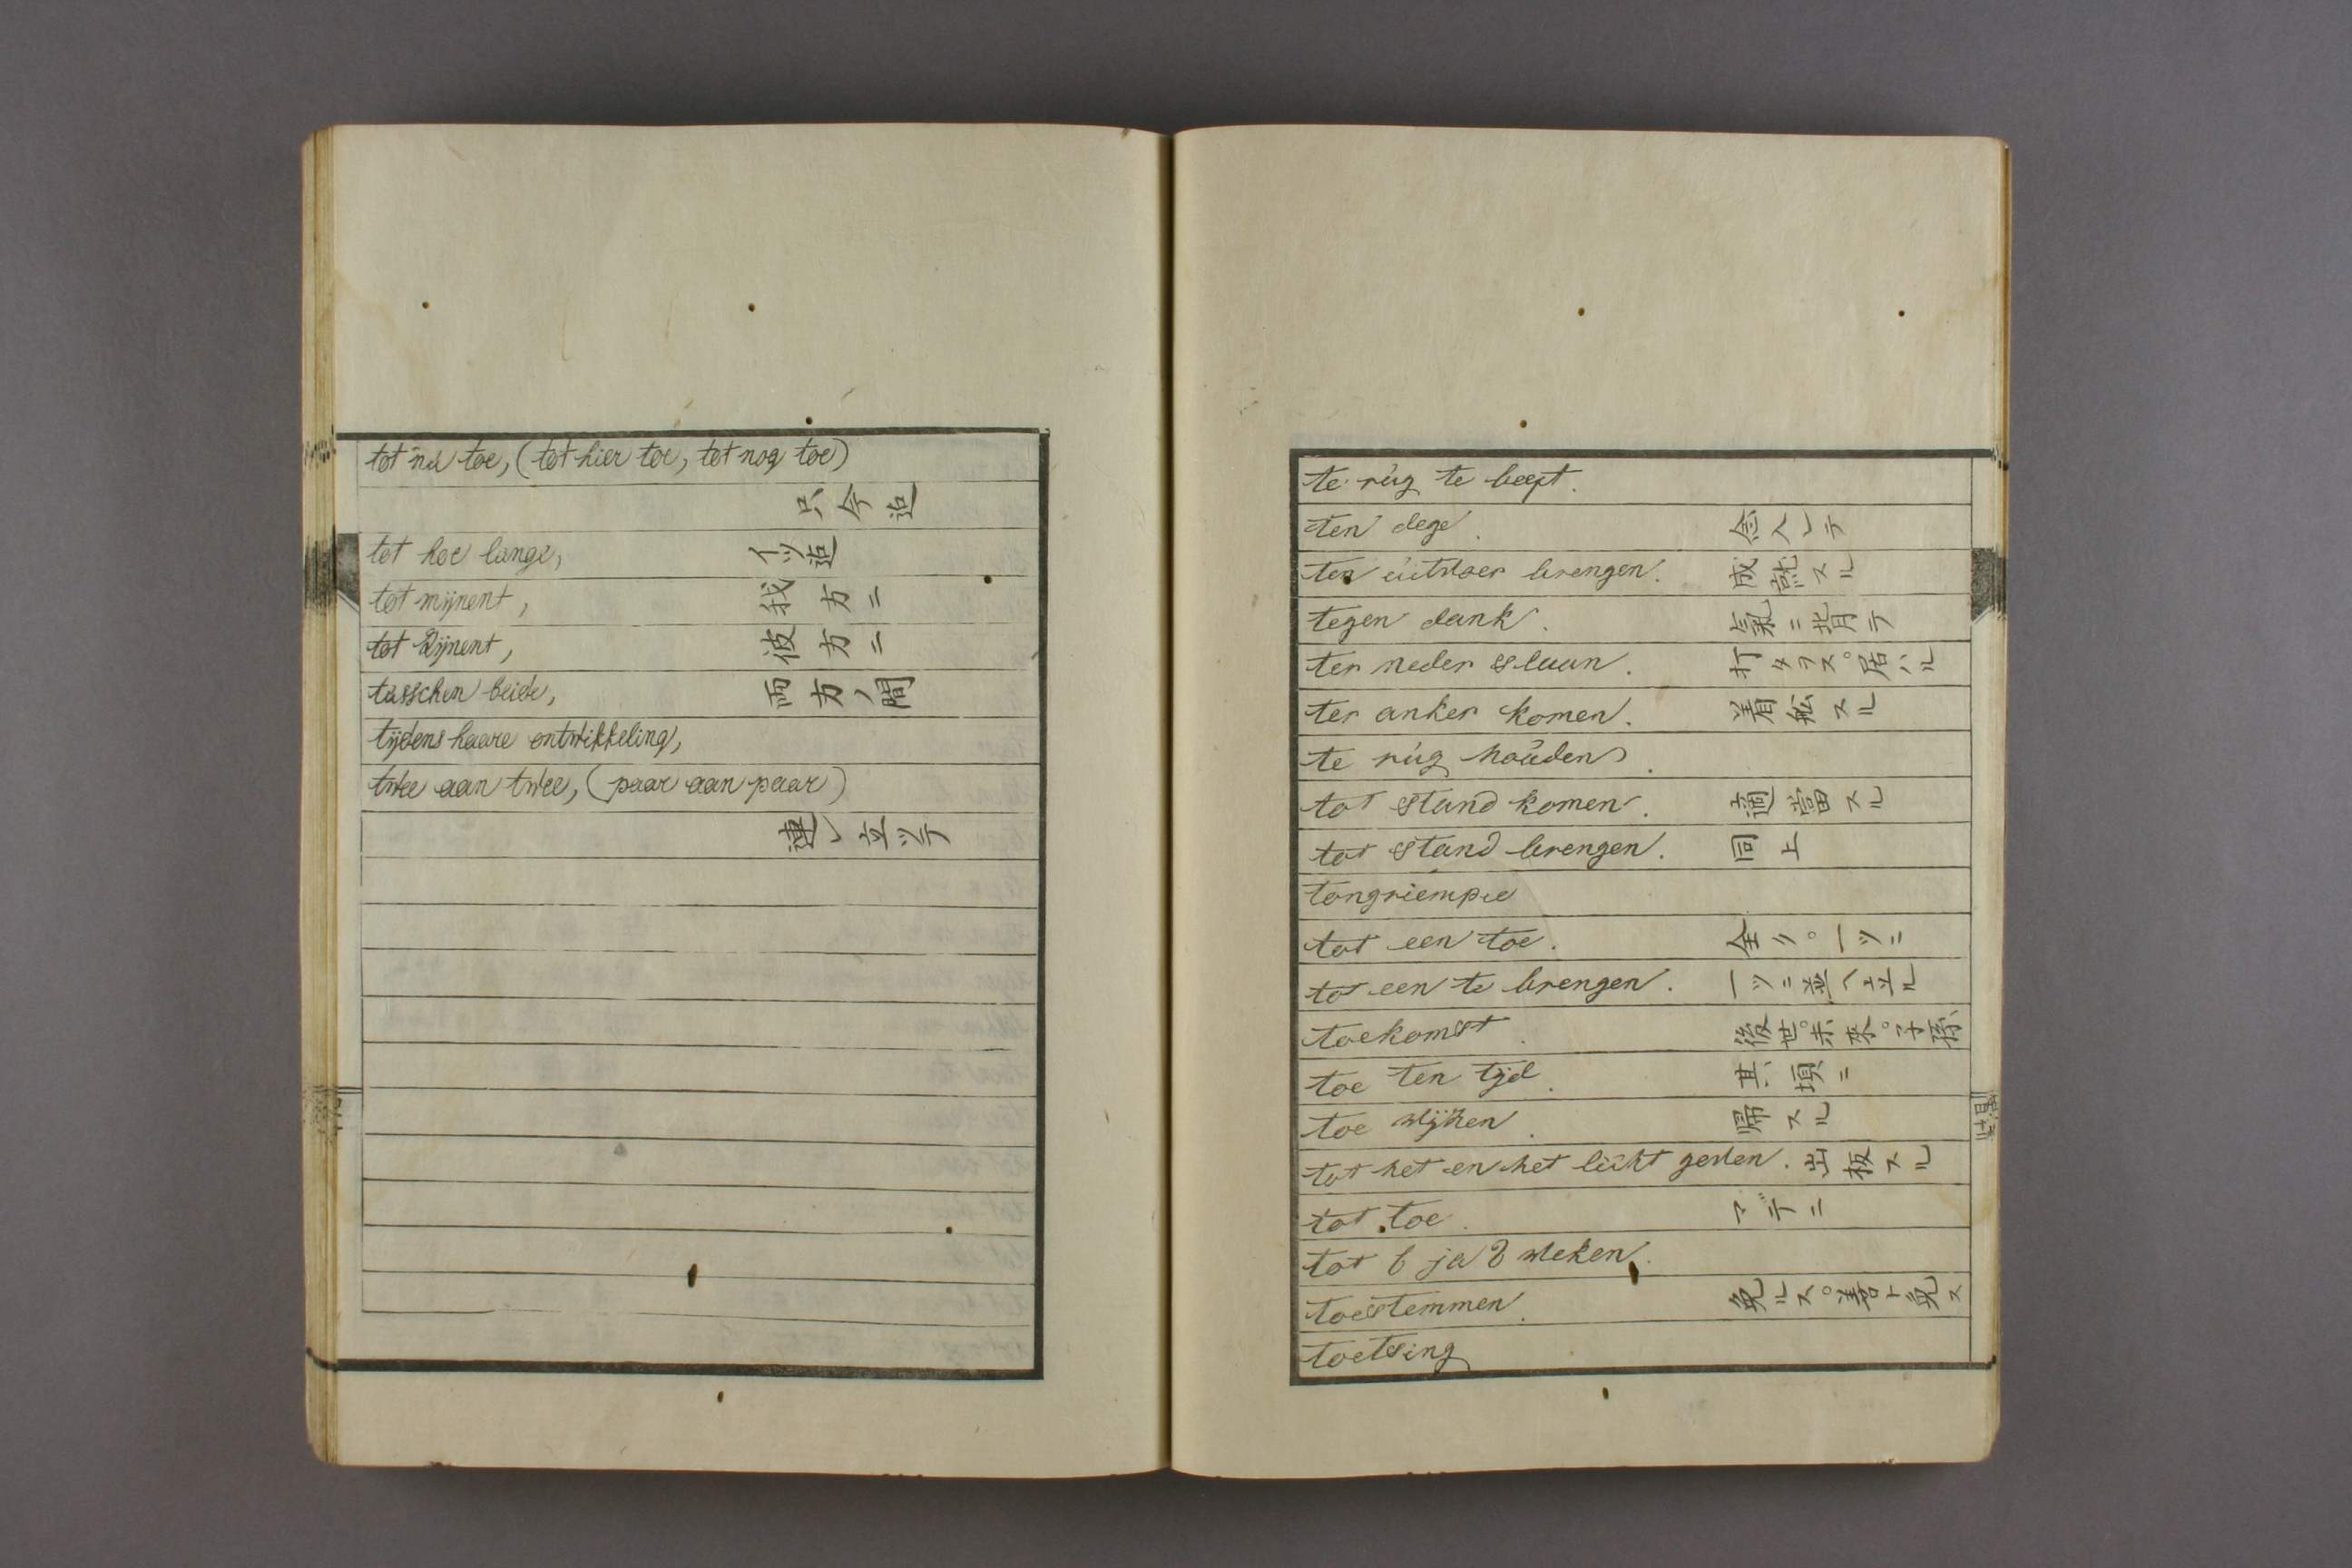 tot nú toe, (tot hier toe, tot nog toe)
只今迠
tot hoe lange, イツ迠
tot mijnent, 我方ニ
tot zijnent, 彼方ニ
tússchen beide, 両方ノ間
tijdens haare ontwikkeling,
twee aan twee, (paar aan paar)
連レ立ツテ
te rúg te
ten dege. 念入レテ
ten úitvoer brengen. 成熟スル
tegen dank. 氣ニ背テ
ter neder slaan. 打タヲス。居ハル
ter anker komen. 着舩スル
te rúg hoúden.
tot stand komen. 適當スル
tot stand brengen. 同上
tongriempie
tot een toe. 全ク。一ツニ
tot een te brengen. 一ツニ並ヘ立ル
toekomst. 後世。未來。子孫
toe ten tijd. 其頃ニ
toe wijken. 帰スル
tot het en het licht geven. 出板スル
tot.toe. マデニ
tot 6 ja 8 weken.
toestemmen. 免ルス。善ト免ス
toetsing